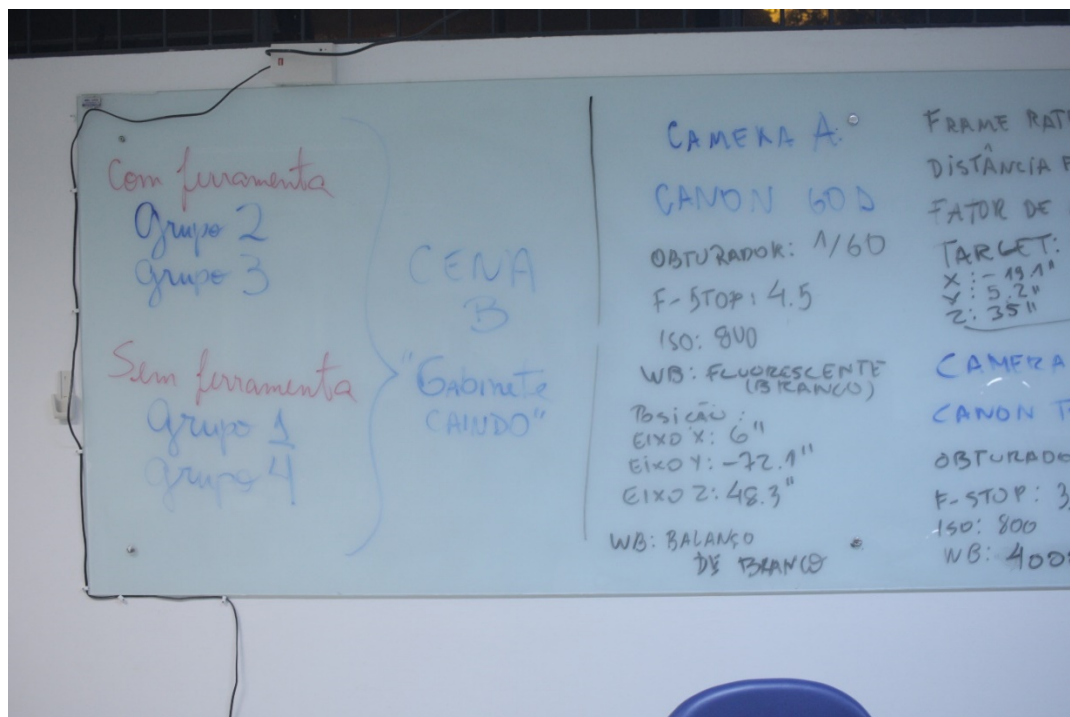 Com ferramenta
Grupo 2
Grupo 3
Sem ferramenta
Grupo 1
Grupo 4
CENA
B
"GABINETE
CAINDO"
CAMERA A:
CANON 60D
OBTURADOR: 1/60
F-STOP: 4.5
ISO: 800
WB: FLUORESCENTE
(BRANCO)
POSIÇÃO:
EIXO X: 6"
EIXO Y: -72.1"
EIXO Z: 48.3"
WB: BALANÇO
DE BRANCO
FRAME RAT
DISTÂNCIA F
FATOR DE
TARGET:
X: -19.1"
Y: 5.2"
Z: 35"
CAMERA
CANON T
OBTURADO
F-STOP: 3
ISO: 800
WB: 400